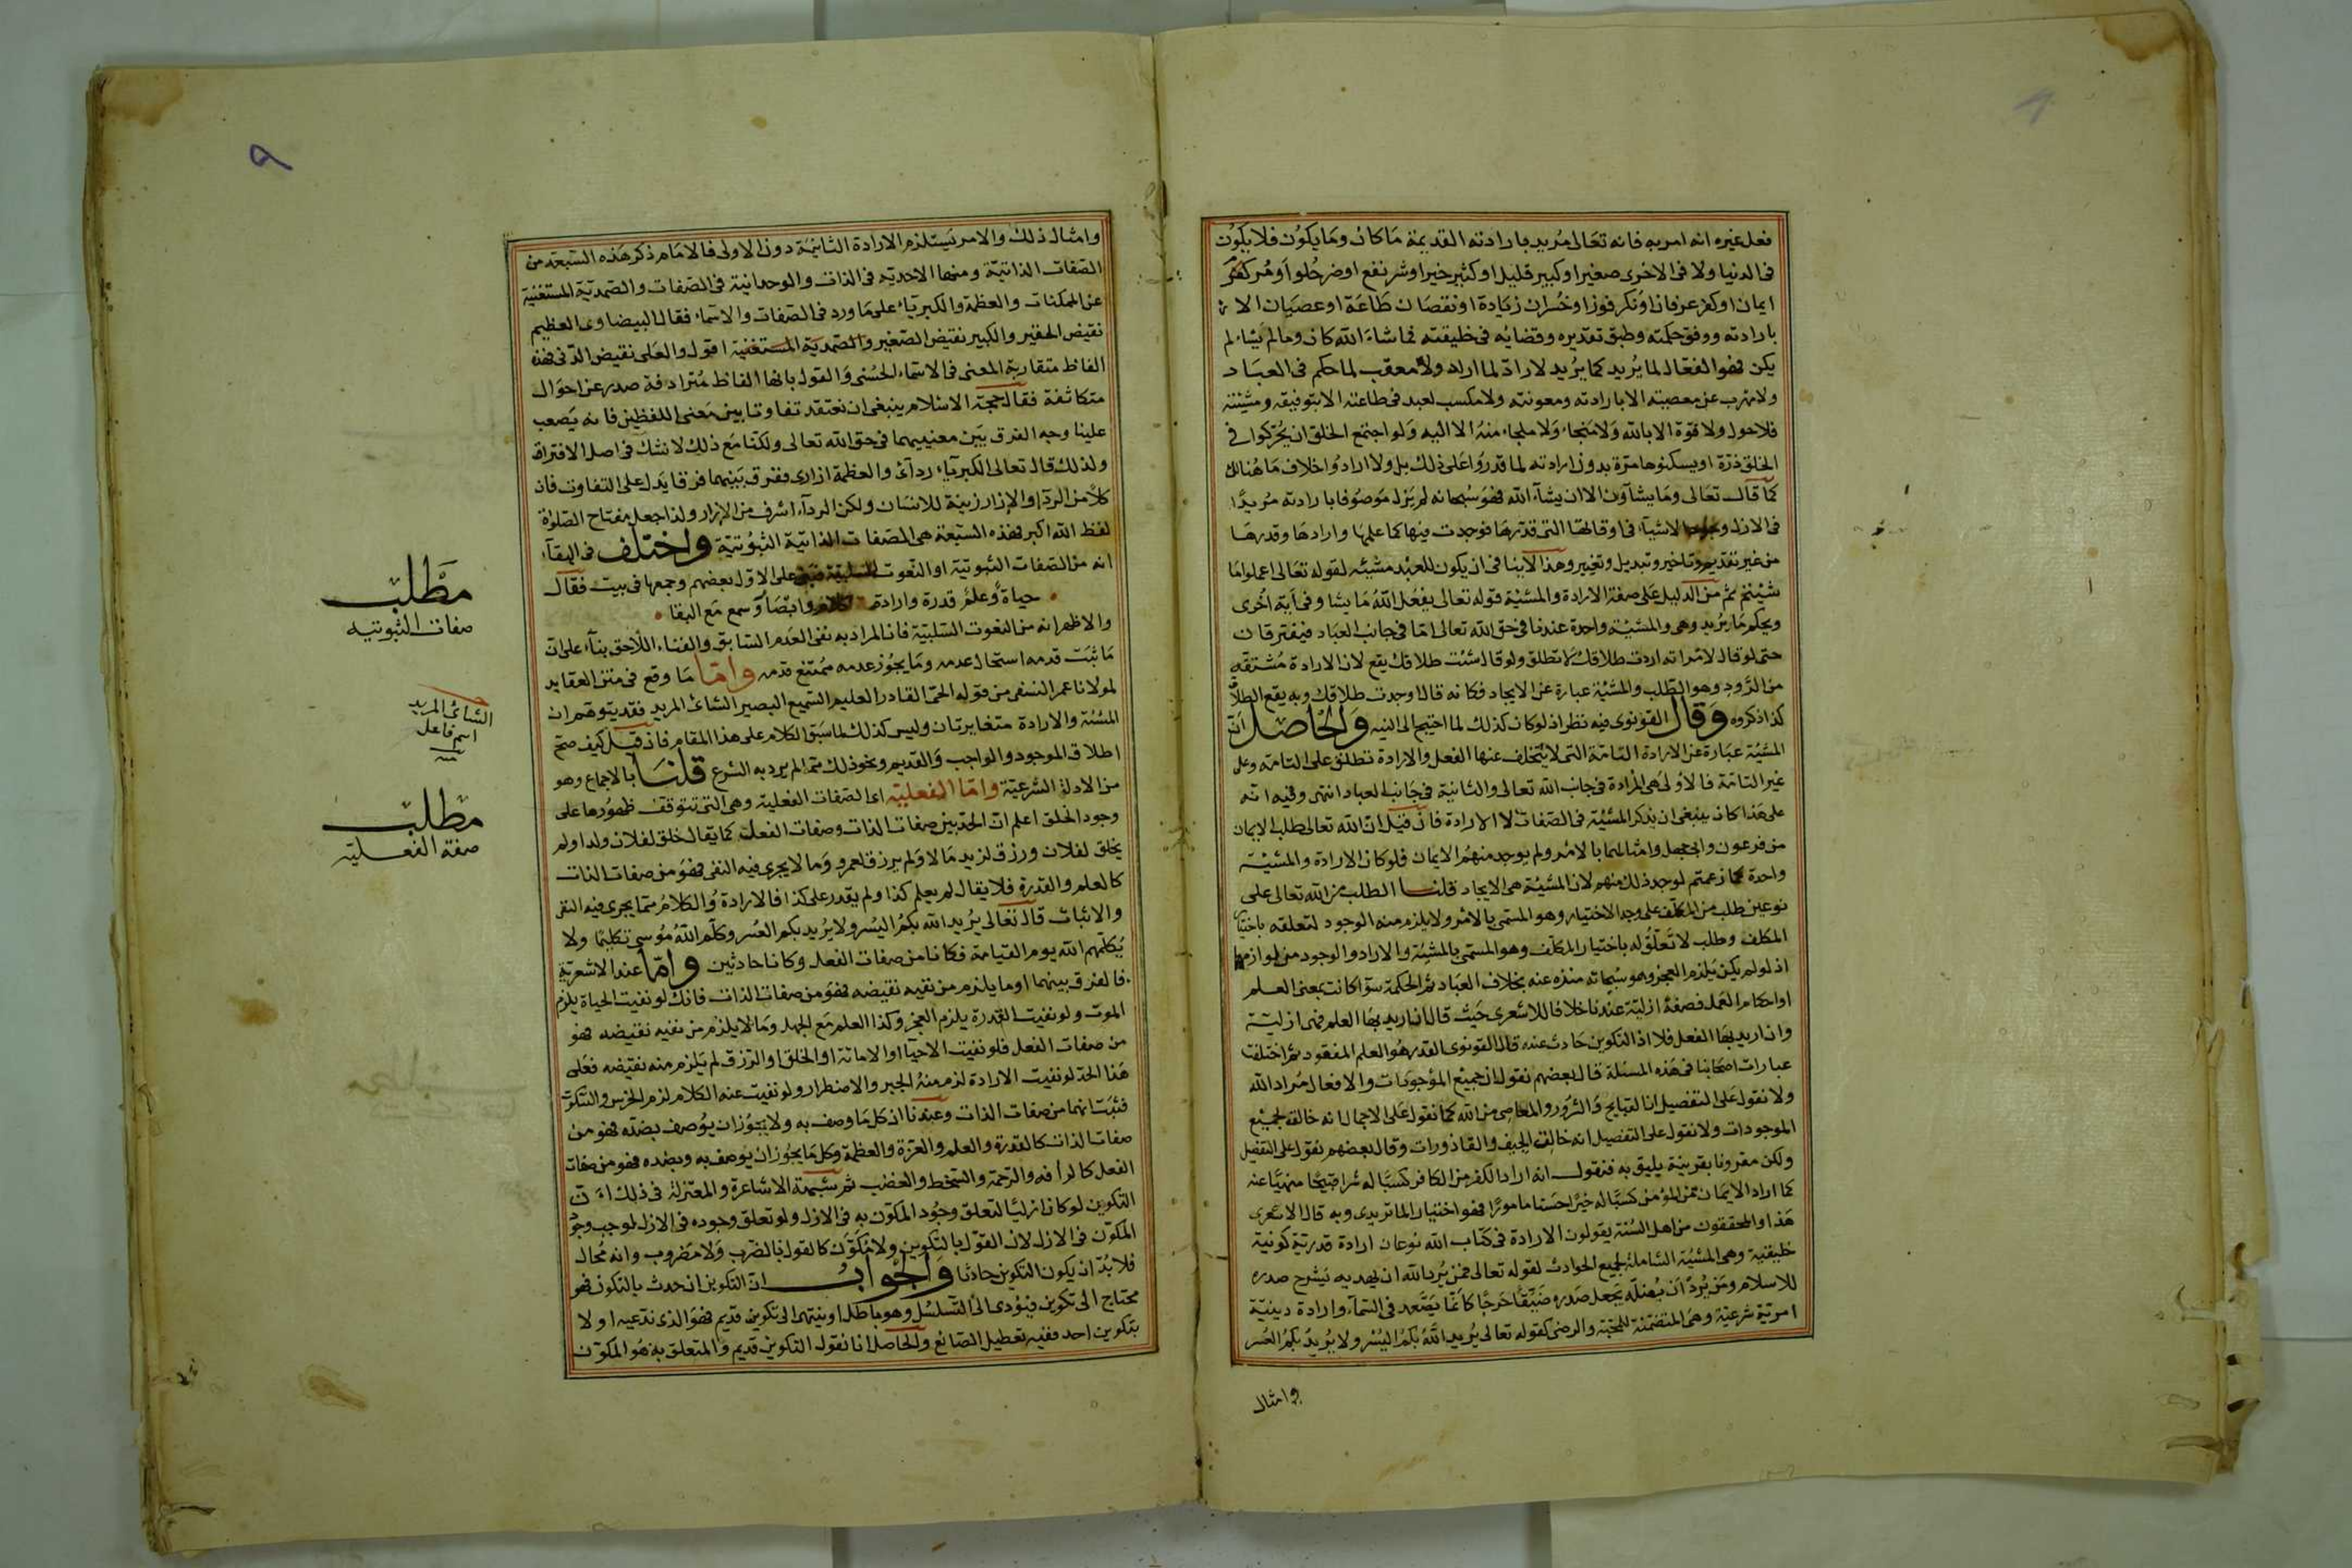 فعل غيره انه امر به فانه تعالى مريد بارادته القديمة ما كان وما يكون فلا يكون
فى الدنيا ولا فى الاخرى صغير او كبير قليل او كثير خير او شر نفع او ضر حلو او مر كفر
ايمان او كفر عرفان او نكر فوز او خسران زيادة او نقصان طاعة او عصيان الا
بارادته ووفق حكمته وطبق تقديره وقضائه فى خليقته فما شاء الله كان وما لم يشاء لم
يكن فهو الفعال لما يريد كما يريد لا راد لما اراد ولا معقب لما حكم فى العباد
ولا مهرب عن معصيته الا بارادته ومعونته ولا مكسب لعبد فى طاعته الا بتوفيقه ومشيئته
فلا حول ولا قوة الا بالله ولا منجاء ولا ملجاء منه الا اليه ولو اجتمع الخلق ان يحركوا فى
الخلق ذرة او يسكنوها مرة بدون ارادته لما قدروا على ذلك بل ولا ارادوا خلاف ما هنالك
كما قال تعالى وما يشاؤن الا ان يشآء الله فهو سبحانه لم يزل موصوفا بارادته مريدا
فى الازل وجود الاشيآء فى اوقاتها التى قدرها فوجدت فيها كما علمها وارادها وقدرها
من غير تقديم وتاخير وتبديل وتغيير وهذا لا ينافى ان يكون للعبد مشيئه لقوله تعالى اعملوا ما
شئتم ثم من الدليل على صفة الارادة والمشيئة قوله تعالى يفعل الله ما يشا وفى آية اخرى
ويحكم ما يريد وهى والمشيئة واحدة عندنا فى حق الله تعالى اما فى جانب العباد فيفترقان
حتى لو قال لامراته اردت طلاقك لا تطلق ولو قال شئت طلاقك يقع لان الارادة مشتقه
من الرود وهو الطلب والمشيئة عبارة عن الايجاد فكانه قال اوجدت طلاقك وبه يقع الطلاق
كذا ذكروه وقال القونوى فيه نظر اذ لو كان كذلك لما احتيج الى النيه والحاصل ان
المشيئة عبارة عن الارادة التامة التى لا يتخلف عنها الفعل والارادة تطلق على التامة وعلى
غير التامة فالاولى هى المرادة فى جانب الله تعالى والثانية فى جانب العباد انتهى وفيه انه
على هذا كان ينبغى ان يذكر المشيئة فى الصفات لا الارادة فان قيل ان الله تعالى طلب الايمان
من فرعون وابى جهل وامثالهما بالامر ولم يوجد منهم الايمان فلو كان الارادة والمشيئة
واحدة كما زعمتم لوجد ذلك منهم لان المشيئة هى الايجاد قلنا الطلب من الله تعالى على
نوعين طلب من المكلف على وجه الاختيار وهو المسمى بالامر ولا يلزم منه الوجود لتعلقه باختيار
المكلف وطلب لا تعلق له باختيار المكلف وهو المسمى بالمشيئة والاراد والوجود من لوازمها
اذ لو لم يكن يلزم العجز وهو سبحانه منزه عنه بخلاف العباد ثم الحكمة سوآ كانت بمعنى العلم
او احكام العمل فصفة ازلية عندنا خلافا للاشعرى حيث قال ان اريد بها العلم فهى ازلية
وان اريد بها الفعل فلا اذ التكوين حادث عنده قال القونوى القدر هو العلم المفقود ثم اختلفت
عبارات اصحابنا فى هذه المسئلة قال بعضهم نقول ان جميع المؤجودات والافعال مراد الله
ولا نقول على التفصيل ان القبايح والشرور والمعاصى من الله كما نقول على الاجمال انه خالق لجميع
الموجودات ولا نقول على التفصيل انه خالق الجيف والقاذورات وقال بعضهم نقول على التفصيل
ولكن مقرونا بقرينة يليق به فنقول انه اراد الكفر من الكافر كسبا له شرا قبيحا منهيا عنه
كما اراد الايمان من المؤمن كسبا له خيرا حسنا مامورا فهو اختيار الماتريدى وبه قال الاشعرى
هذا والمحققون من اهل السنة يقولون الارادة فى كتاب الله نوعان ارادة قدرية كونية
خليقية وهى المشيئة الشاملة لجميع الحوادث لقوله تعالى فمن يرد الله ان يهديه يشرح صدره
للاسلام ومن يرد ان يضله يجعل صدره ضيقا حرجا كانما يصعد فى السماء وارادة دينية
امرية شرعية وهى المتضمنة للمحبة والرضى كقوله تعالى يريد الله بكم اليسر ولا يريد بكم العسر
وامثال
٩
وامثال ذلك والامر يستلزم الارادة الثانية دون الاولى فالامام ذكر هذه السبعة من
الصفات الذاتية ومنها الاحدية فى الذات والوحدانية فى الصفات والصمدية المستغنية
عن الممكنات والعظمة والكبرياء على ما ورد فى الصفات والاسماء فقال البيضاوى العظيم
نقيض الحقير والكبير نقيض الصغير والصمدية المستغنية اقول والعلى نقيض الدنى فهذه
الفاظ متقاربة المعنى فى الاسماء الحسنى والقول بانها الفاظ مترادفة صدر عن احوال
متكاثفة فقال حجة الاسلام ينبغى ان نعتقد تفاوتا بين معنى اللفظين فانه يصعب
علينا وجه الفرق بين معنييهما فى حق الله تعالى ولكنا مع ذلك لا نشك فى اصل الافتراق
ولذلك قال تعالى الكبرياء ردآى والعظمة ازارى ففرق بينهما فرقا يدل على التفاوت فان
كلا من الردآ والازار زينة للانسان ولكن الردآء اشرف من الازار ولذا جعل مفتاح الصلوة
لفظ الله اكبر فهذه السبعة هى الصفات الذاتية الثبوتية واختلف فى البقآء
انه من الصفات الثبوتية او النعوت السلبية على الاول بعضهم وجمعها فى بيت فقال
حياة وعلم قدرة وارادة كلام وابصار وسمع مع البقا
والاظهر انه من النعوت السلبية فان المراد به نفى العدم السابق والفناء اللاحق بناء على ان
ما ثبت قدمه استحال عدمه وما يجوز عدمه ممتنع قدمه واما ما وقع فى متن العقايد
لمولانا عمر النسفى من قوله الحى القادر العليم السميع البصير الشائى المريد فقد يتوهم ان
المشئة والارادة متغايرتان وليس كذلك لما سبق الكلام على هذا المقام فان قيل كيف صح
اطلاق الموجود والواجب والقديم ونحو ذلك مما لم يرد به الشرع قلنا بالاجماع وهو
من الادلة الشرعية واما الفعلية اى الصفات الفعلية وهى التى تتوقف ظهورها على
وجود الخلق اعلم ان الحد بين صفات الذات وصفات الفعل كما يقال خلق لفلان ولدا ولم
يخلق لفلان ورزق لزيد مالا ولم يرزق لعمرو وما لا يجرى فيه النفى فهو من صفات الذات
كالعلم والقدرة فلا يقال لم يعلم كذا ولم يقدر على كذا فالارادة والكلام مما يجرى فيه النفى
والاثبات قال تعالى يريد الله بكم اليسر ولا يريد بكم العسر وكلم الله موسى تكليما ولا
يكلمهم الله يوم القيامة فكانا من صفات الفعل وكانا حادثين واما عند الاشعرية
فالفرق بينهما اوما يلزم من نفيه نقيضه فهو من صفات الذات فانك لو نفيت الحياة يلزم
الموت ولو نفيت القدرة يلزم العجز وكذا العلم مع الجهل وما لا يلزم من نفيه نقيضه فهو
من صفات الفعل فلو نفيت الاحيآ او الاماتة او الخلق او الرزق لم يلزم منه نقيضه فعلى
هذا الحد لو نفيت الارادة لزم منه الجبر والاضطرار ولو نفيت عنه الكلام لزم الخرس والسكوت
فثبت انهما من صفات الذات وعندنا ان كل ما وصف به ولا يجوز ان يوصف بضده فهو من
صفات الذات كالقدرة والعلم والعزة والعظمة وكل ما يجوز ان يوصف به وبضده فهو من صفات
الفعل كالرأفه والرحمة والسخط والغضب ثم شبهة الاشاعرة والمعتزلة فى ذلك ان
التكوين لو كان ازليا لتعلق وجود المكون به فى الازل ولو تعلق وجوده فى الازل لوجب وجود
المكون فى الازل لان القول بالتكوين ولا مكون كالقول بالضرب ولا مضروب وانه محال
فلا بد ان يكون التكوين حادثا والجواب ان التكوين ان حدث بالتكون فهو
محتاج الى تكوين فيؤدى الى التسلسل وهو باطل او ينتهى الى تكوين قديم فهو الذى ندعيه او لا
بتكوين احد ففيه تعطيل الصانع والحاصل انا نقول التكوين قديم والمتعلق به هو المكون
مطلب
صفات الثبوتيه
الشائى المريد
اسم فاعل
مطلب
صفة الفعليه